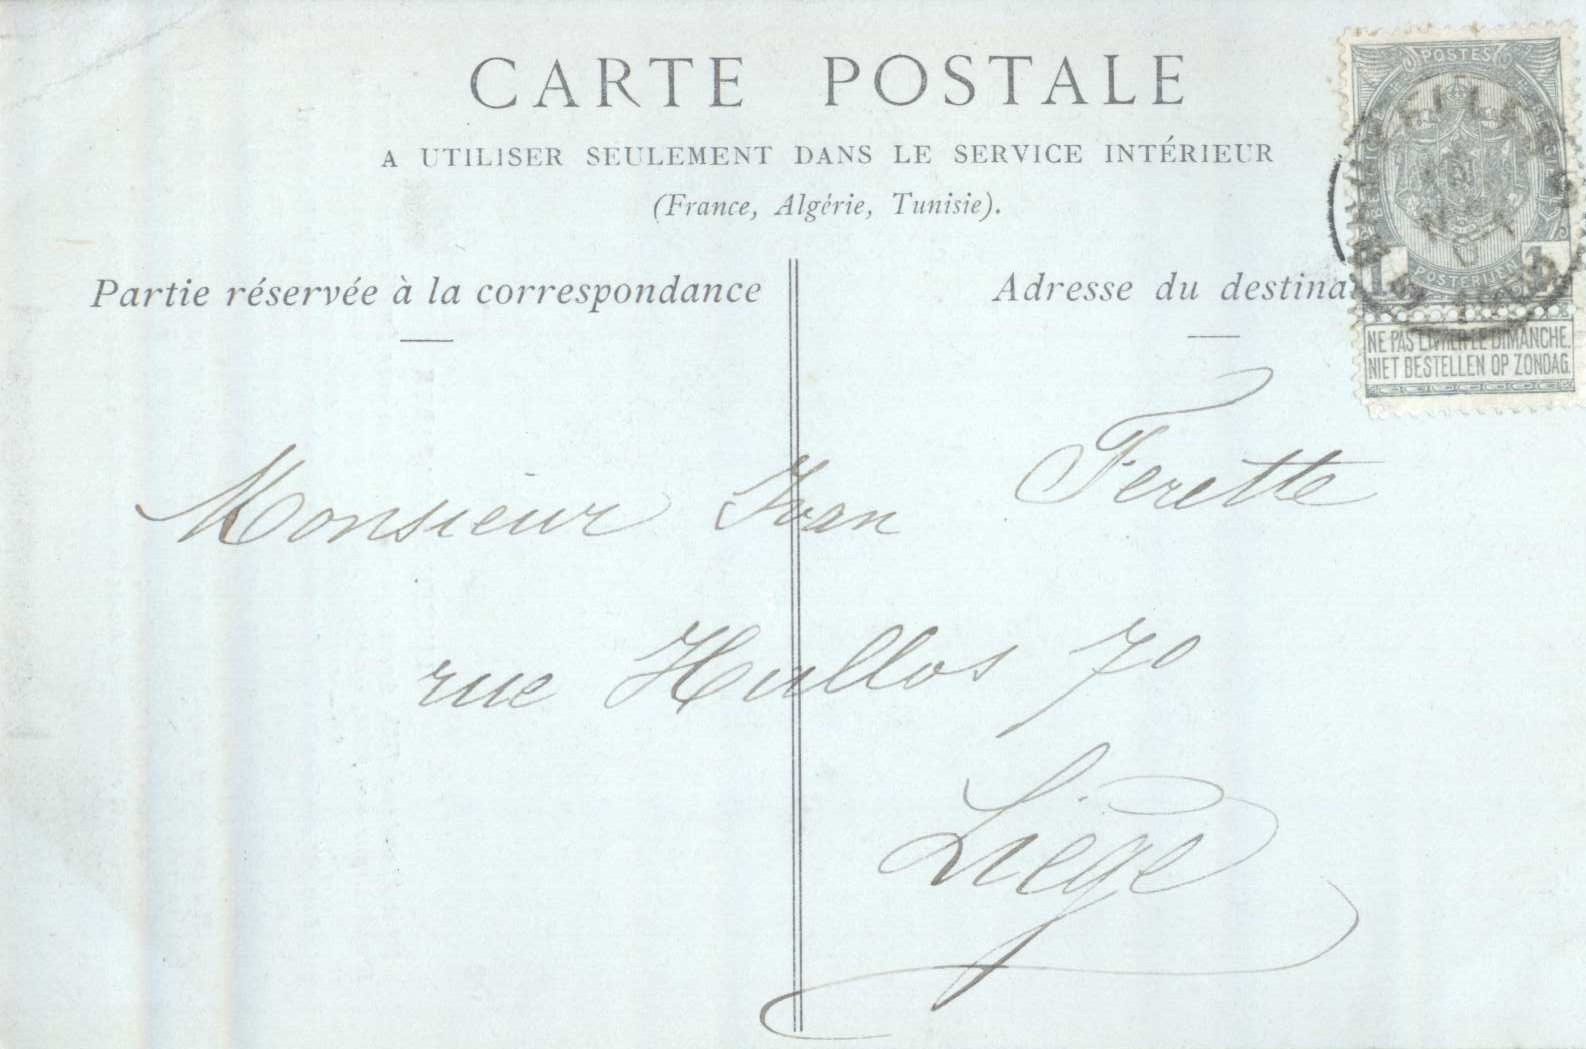 CARTE POSTALE
A UTILISER SEULEMENT DANS LE SERVICE INTÉRIEUR
(France, Algérie, Tunisie).
Partie réservée à la correspondance
Adresse du destina
POSTES
1 POSTERIJEN 1
NE PAS LIVRER LE DIMANCHE.
NIET BESTELLEN OP ZONDAG.
Monsieur Ivan Ferette
rue Hullos 70
Liège